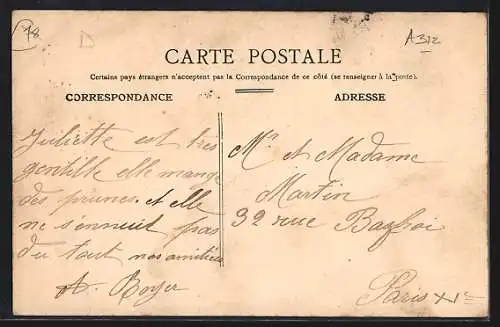 78
A312
CARTE POSTALE
Certains pays étrangers n'acceptent pas la Correspondance de ce côté (se renseigner à la poste).
CORRESPONDANCE
ADRESSE
Juliette est très
gentille elle mange
des prunes et elle
ne s'ennuit pas
du tout nos amitiés
A. Royer
Mr et Madame
Martin
32 rue Basfroi
Paris XIe